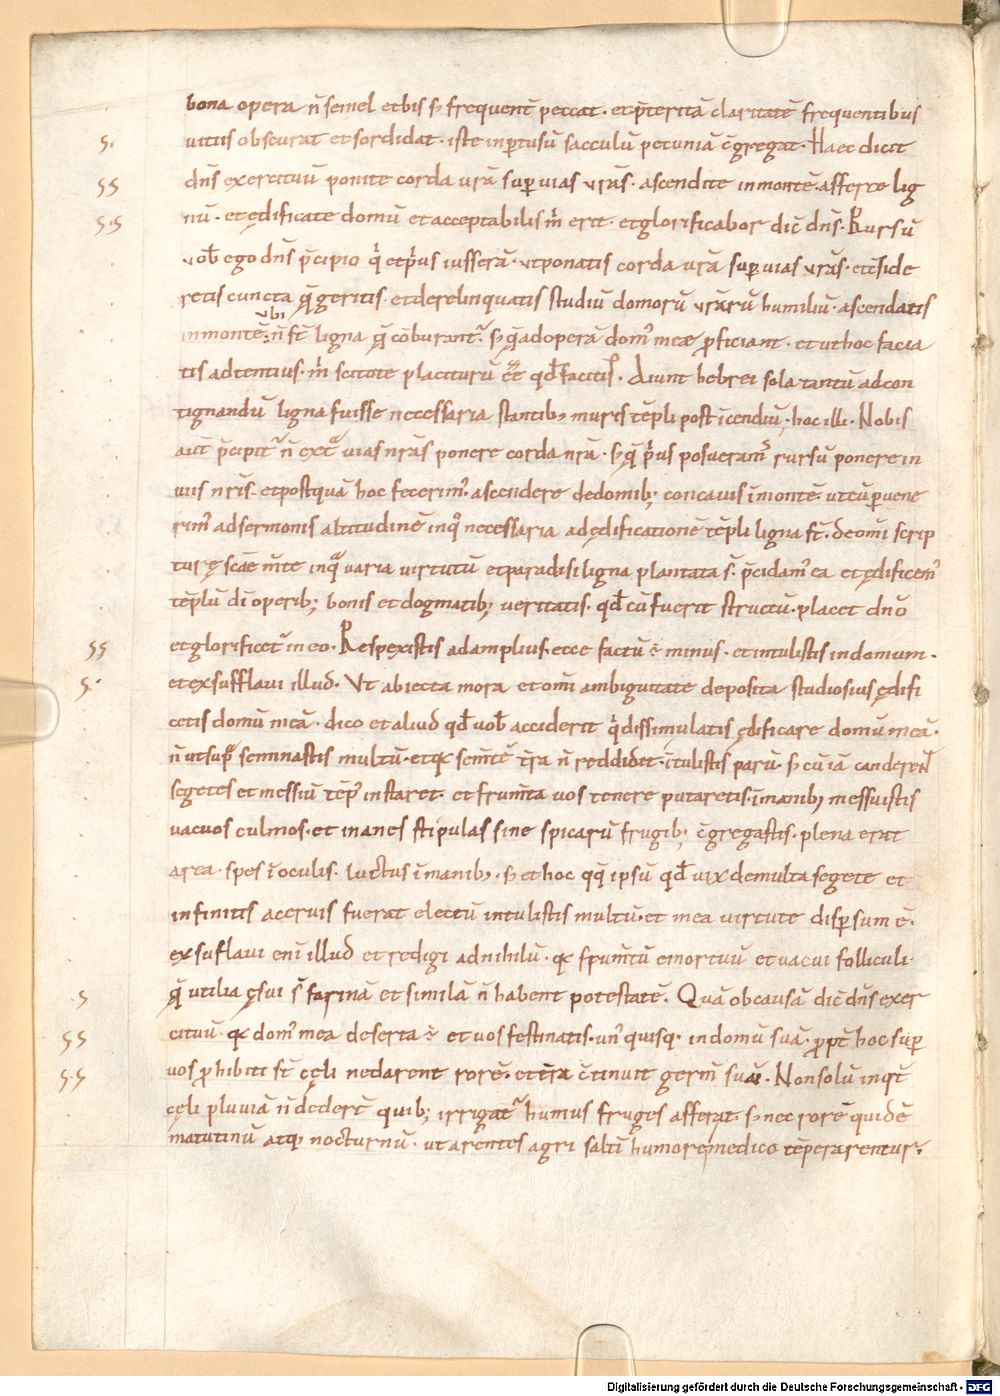 bona opera n̄ semel et bis s; frequent̄ peccat. et p̄teritā claritatē frequentibus
s. vitiis obscurat et sordidat. iste in ꝑtusū sacculū pecuniā c̄gregat. Haec dicit
ss dn̄s exercituū ponite corda vrā suꝑ vias vrās. ascendite in montē. afferte lig
s.s nū. et ędificate domū et acceptabilis m̄ erit. et glorificabor dic̄ dn̄s. Rursū
vob̄ ego dn̄s p̄cipio q̄ et p̄us iusserā. vt ponatis corda vrā suꝑ vias vrās. et c̄side
retis cuncta q̄ geritis. et derelinquatis studiū domorū vrārū humiliū. ascendatis
vbi
in montē. n̄ st̄ ligna q̄ cōburant̄. s; q̄ ad operā dom' meæ ꝓficiant. et ut hoc facia
tis adtentius. m̄ scitote placiturū ēē qd̄ facitis. Aiunt hebrei sola tantū ad con
tignandū ligna fuisse necessaria stantib; muris tēpli post īcendiū. hoc illi. Nobis
aut̄ p̄cipit̄ n̄ extᵃ vias nrās ponere corda nrā. s; q̄ p̄us posueram' rursū ponere in
viis nrīs. et postquā hoc fecerim'. ascendere de domib; concauis ī montē. ut cū ꝑuene
rim' ad sermonis altitudinē in qᵒ necessaria ad ędificationē tēpli ligna st̄. de omī scrip
turę scāe m̄te in qᵃ varia virtutū et paradisi ligna plantata s̄. p̄cidam' ea et ędificem'
tēplū dī operib; bonis et dogmatib; veritatis. qd̄ cū fuerit structū. placet dn̄o
ss et glorificet̄ in eo. Respexistis ad amplius. ecce factū ē minus. et intulistis in domum.
s. et exsufflaui illud. Vt abiecta mora et omī ambiguitate deposita studiosius ędifi
cetis domū meā. dico et aliud qd̄ vob̄ acciderit q̄ dissimulatis ędificare domū meā.
n̄ ut sup̄ seminastis multū. et qꝛ sem̄tē t̄ra n̄ reddidit. ītulistis parū. s; cū iā canderent
segetes et messiū tēp' instaret. et frum̄ta vos tenere putaretis. ī manib; messuistis
vacuos culmos. et inanes stipulas sine spicarū frugib; c̄gregastis. plena erat
area. spes ī oculis. luctus ī manib;. s; et hoc qq̄ ipsū qd̄ vix de multa segete et
infinitis aceruis fuerat electū intulistis multū. et mea virtute disꝑsum ē.
exsuflaui enī illud et redigi ad nihilū. qꝛ frum̄tū emortuū et vacui folliculi.
.s q̄ utilia ęsui s̄ farinā et similā n̄ habent potestatē. Quā ob causā dic̄ dn̄s exer
ss cituū. qꝛ dom' mea deserta ē et vos festinatis. un' quisq; in domū suā. ꝓpt̄ hoc suꝑ
ss vos ꝓhibiti st̄ cęli ne darent rorē. et t̄ra c̄tinuit germ̄ suū. Non solū inqt̄
cęli pluviā n̄ dedert̄ quib; irrigat̄ humus fruges afferat. s; nec rorē quidē
matutinū atq; nocturnū. ut arentes agri saltī humore medico tēperarentur.
Digitalisierung gefördert durch die Deutsche Forschungsgemeinschaft - DFG